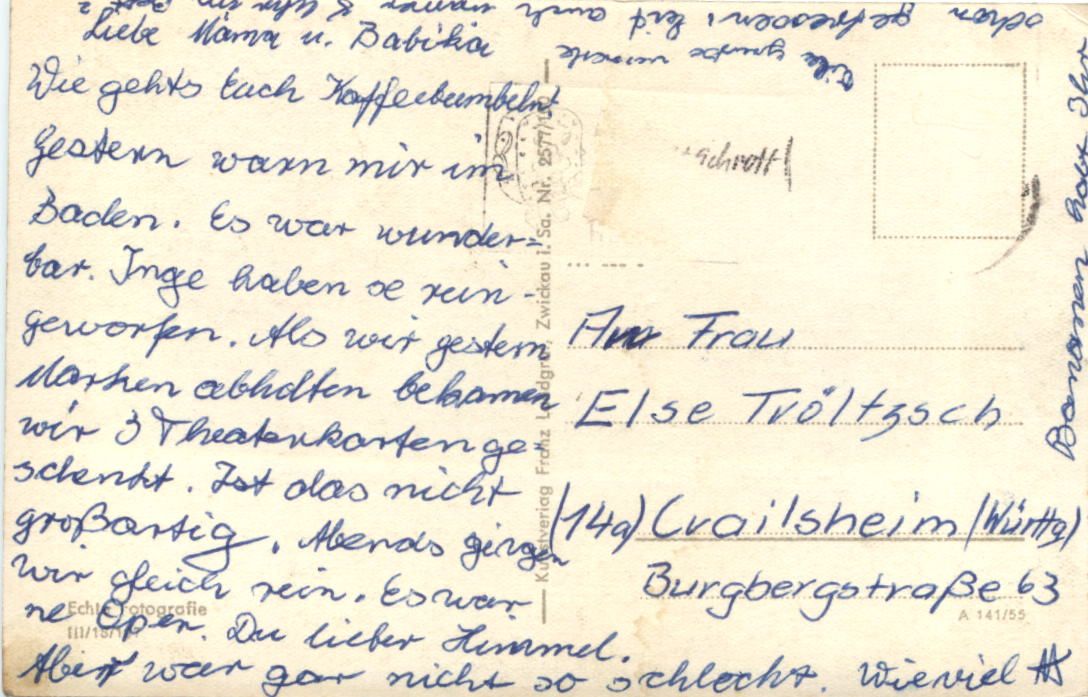 Liebe Mama u. Babika
Wie gehts Euch
Gestern warn mir im
Baden. Es war wunder-
bar. Inge haben se rein-
geworfen. Als wir gestern
Marken abholten bekamen
wir 3 Theaterkarten ge-
schenkt. Ist das nicht
großartig. Abends gingen
wir gleich rein. Es war
ne Oper. Du lieber Himmel.
Aber war gar nicht so schlecht. Wieviel
Bananen habt Ihr
schon gefressen; seid auch immer 8 Uhr im Bett?
Viele Grüße
Schrott
An Frau
Else Tröltzsch
(14a) Crailsheim (Württg)
Burgbergstraße 63
Kunstverlag Franz Landgraf, Zwickau i. Sa. Nr. 2577/
Echte Fotografie
III/18/
A 141/55